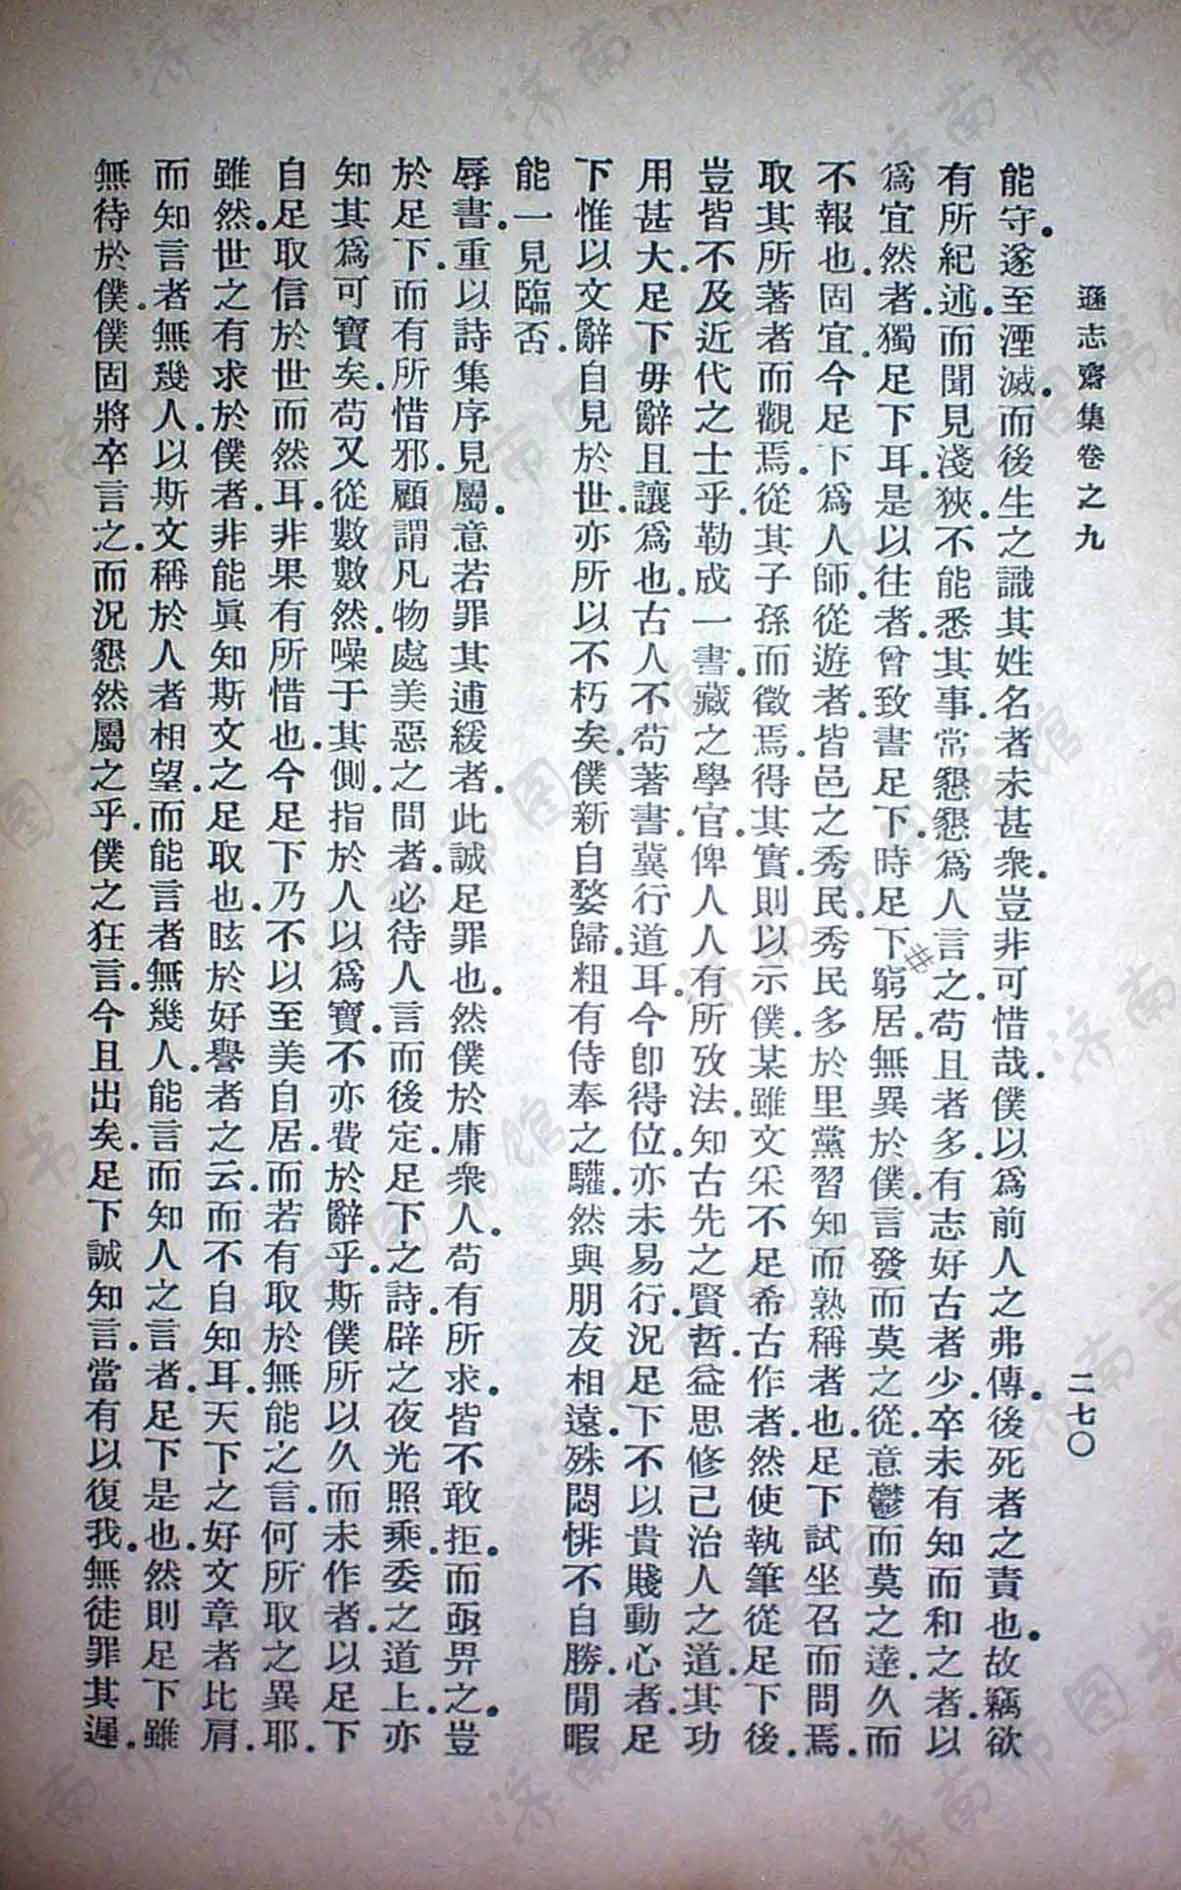 遜志齋集卷之九
二七〇
能守．遂至湮滅．而後生之識其姓名者未甚衆．豈非可惜哉．僕以爲前人之弗傳．後死者之責也．故竊欲
有所紀述．而聞見淺狹．不能悉其事．常懇懇爲人言之．苟且者多．有志好古者少．卒未有知而和之者．以
爲宜然者．獨足下耳．是以往者．曾致書足下．時足下窮居．無異於僕．言發而莫之從．意鬱而莫之達．久而
不報也．固宜．今足下爲人師．從遊者．皆邑之秀民．秀民多於里黨習知而熟稱者也．足下試坐召而問焉．
取其所著者而觀焉．從其子孫而徵焉．得其實．則以示僕．某雖文采不足希古作者．然使執筆從足下後．
豈皆不及近代之士乎．勒成一書．藏之學官．俾人人有所攷法．知古先之賢哲．益思修己治人之道．其功
用甚大．足下毋辭且讓爲也．古人不苟著書．冀行道耳．今卽得位．亦未易行．況足下不以貴賤動心者．足
下惟以文辭自見於世．亦所以不朽矣．僕新自婺歸．粗有侍奉之驩．然與朋友相遠．殊悶悱不自勝．閒暇
能一見臨否．
辱書．重以詩集序見屬．意若罪其逋緩者．此誠足罪也．然僕於庸衆人．苟有所求．皆不敢拒．而亟畀之．豈
於足下．而有所惜邪．顧謂凡物處美惡之間者．必待人言而後定．足下之詩．辟之夜光照乘．委之道上．亦
知其爲可寶矣．苟又從數數然．噪于其側．指於人以爲寶．不亦費於辭乎．斯僕所以久而未作者．以足下
自足取信於世而然耳．非果有所惜也．今足下乃不以至美自居．而若有取於無能之言．何所取之異耶．
雖然．世之有求於僕者．非能眞知斯文之足取也．眩於好譽者之云．而不自知耳．天下之好文章者比肩．
而知言者無幾人．以斯文稱於人者相望．而能言者無幾人．能言而知人之言者．足下是也．然則足下雖
無待於僕．僕固將卒言之．而況懇然屬之乎．僕之狂言．今且出矣．足下誠知言．當有以復我．無徒罪其遲．